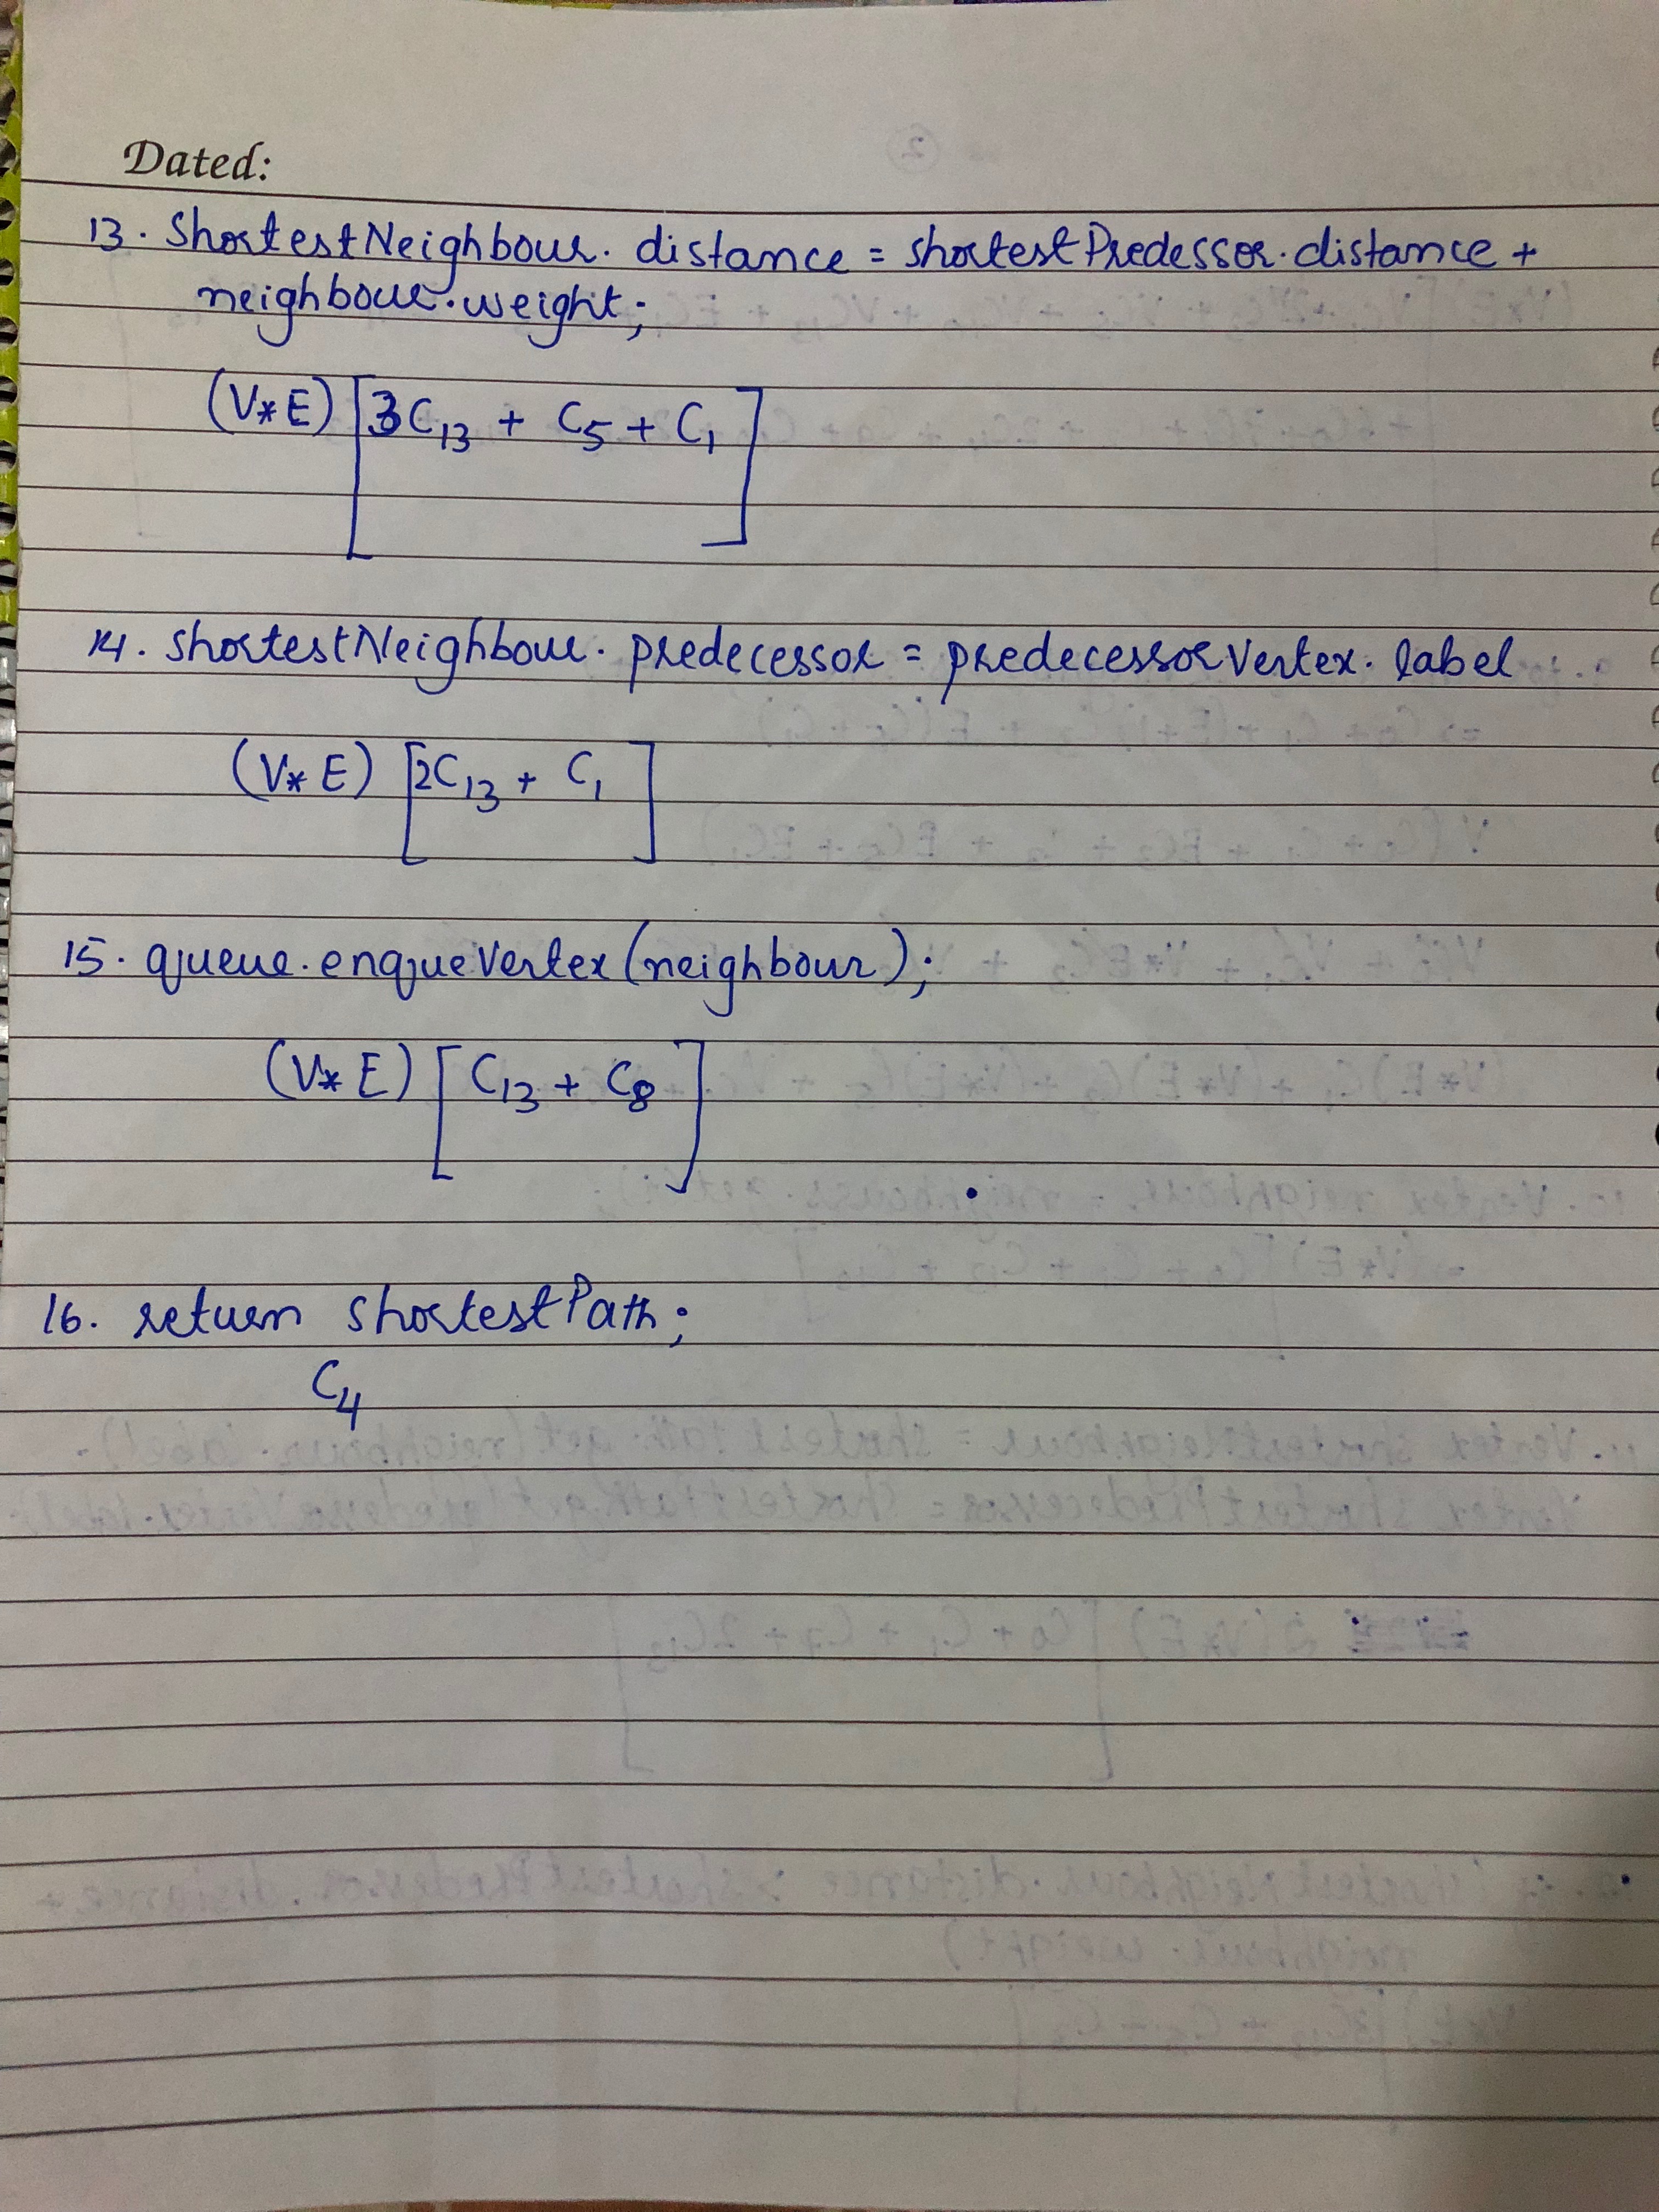 Dated:
13. ShortestNeighbour. distance = shortestPredessor. distance +
neighbour. weight;
(V*E) [3C₁₃ + C₅ + C₁]
14. shortestNeighbour. predecessor = predecessorVertex. label
(V* E) [2C₁₃ + C₁]
15. queue. enqueVertex (neighbour);
(V* E) [C₁₃ + C₈]
16. return shortestPath;
C₄